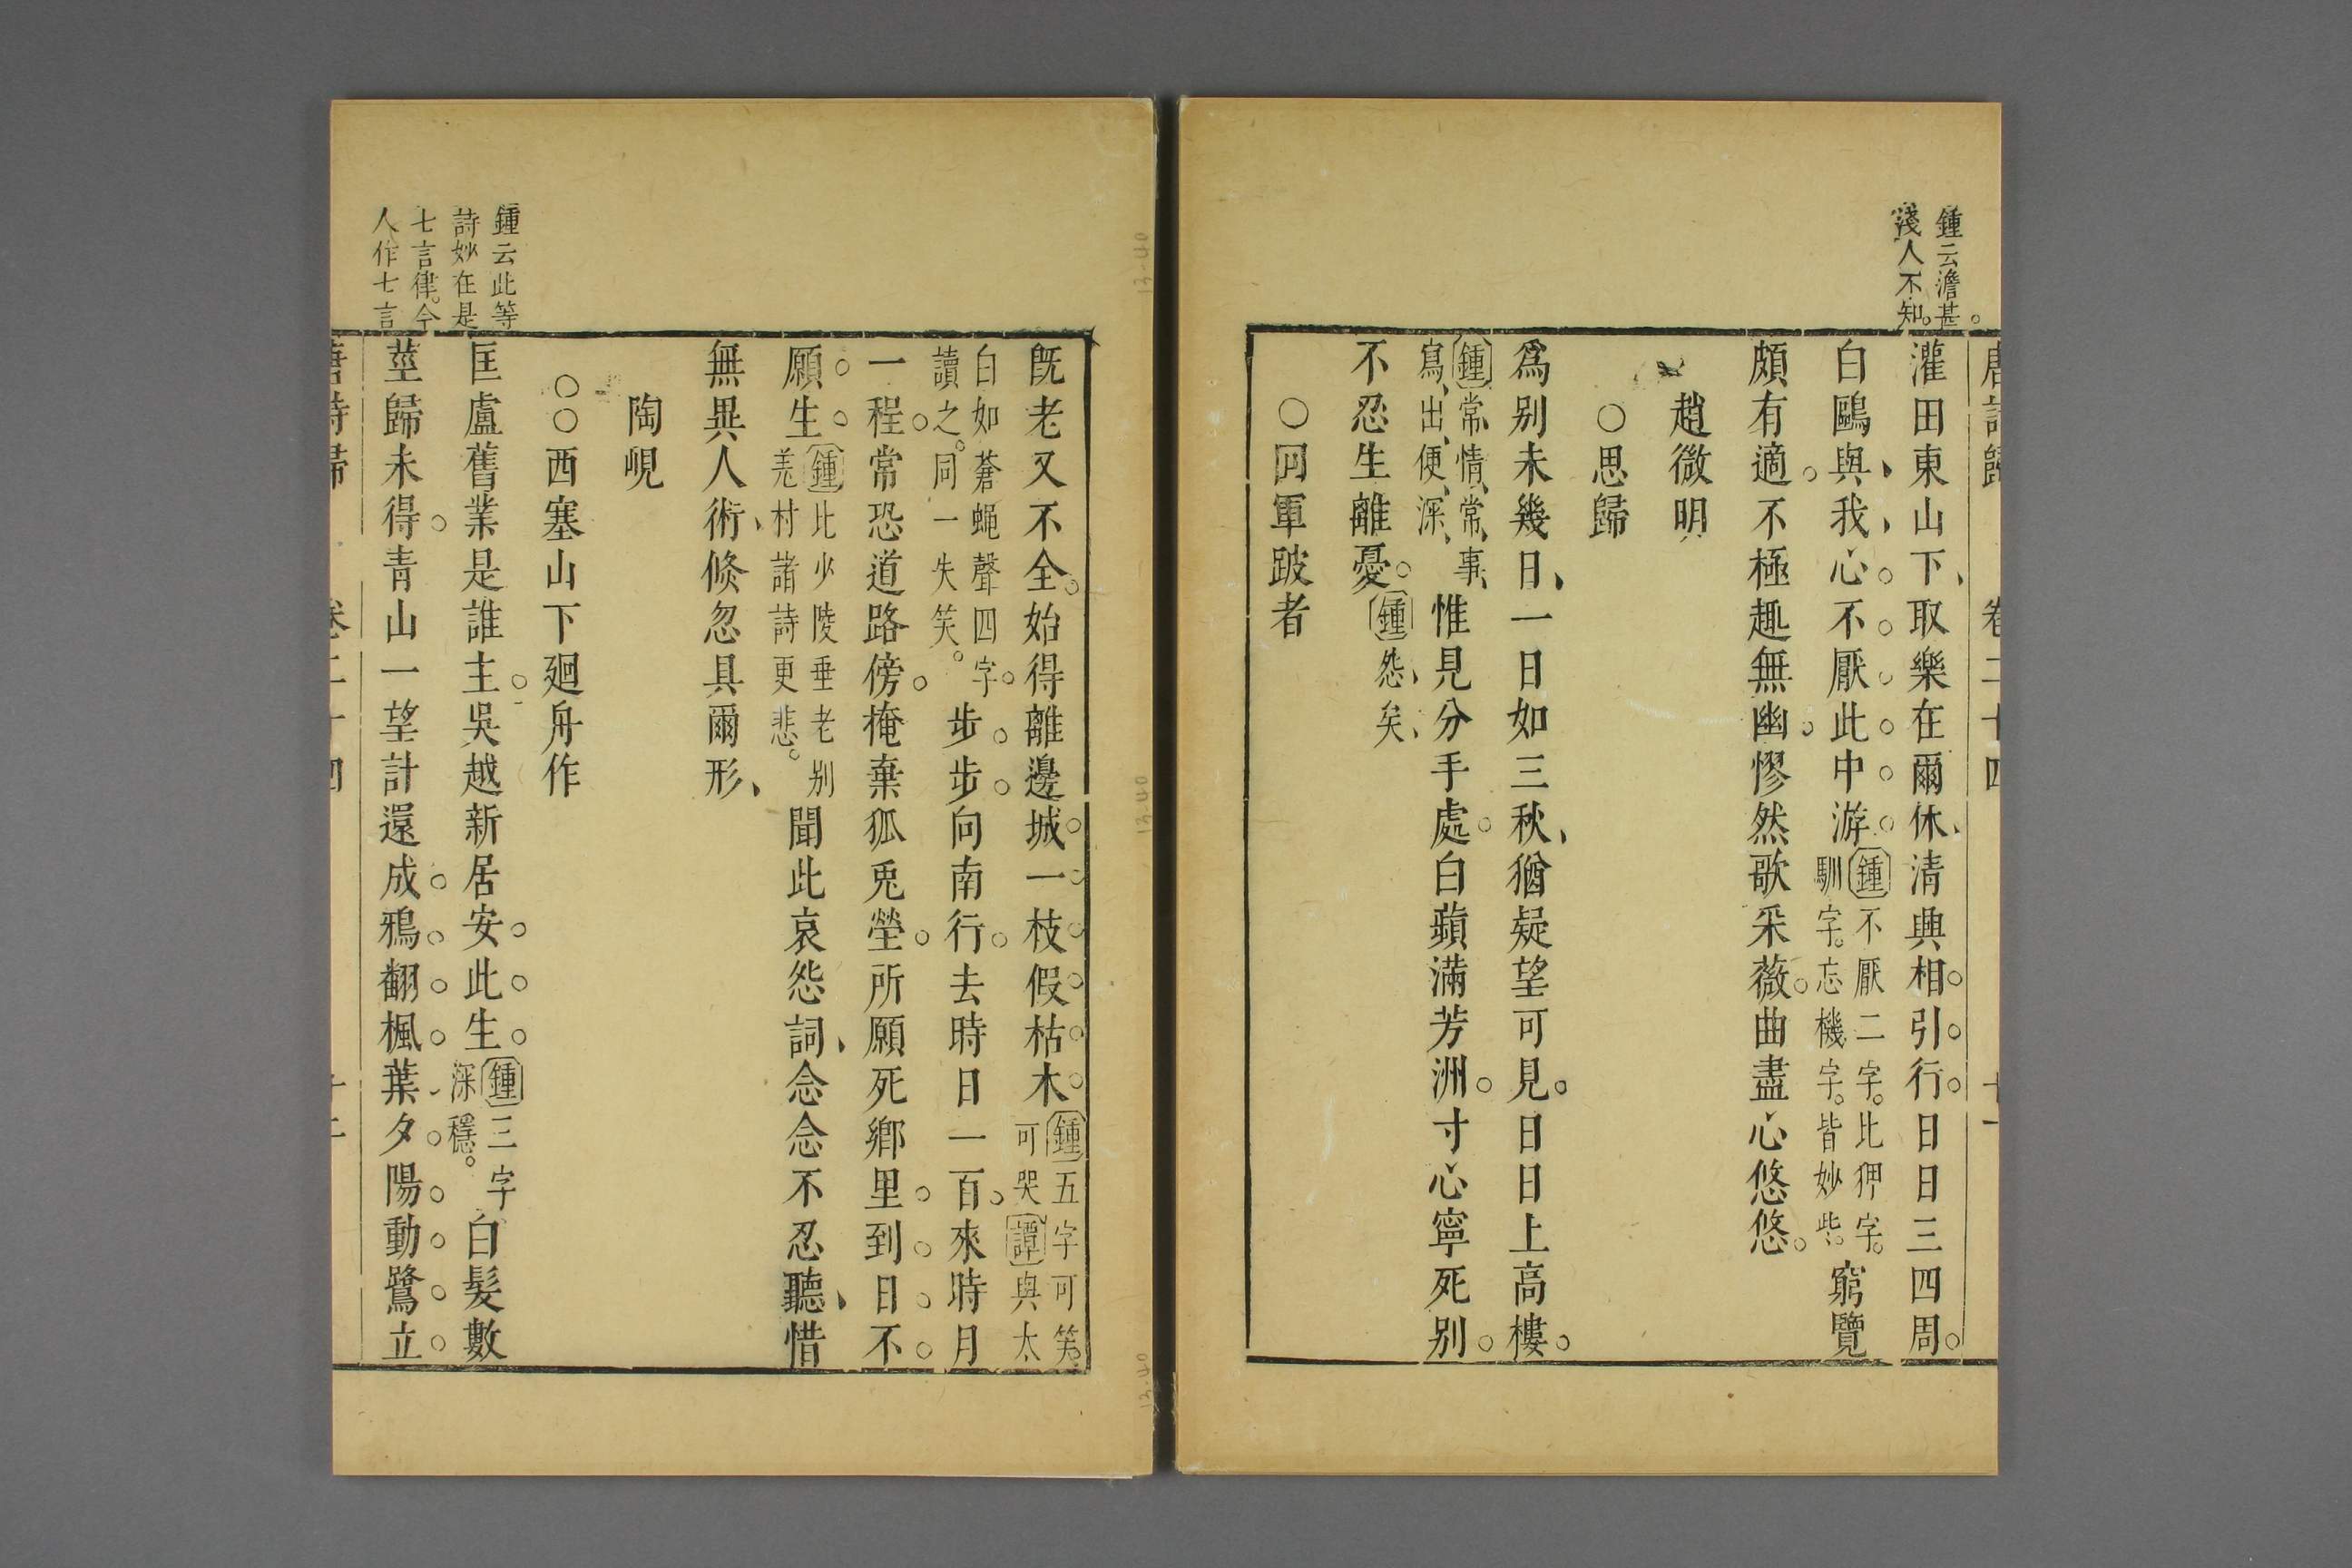 唐詩歸 卷二十四 十一
鍾云澹甚
淺人不知
灌田東山下取樂在爾休清興相引行日日三四周
白鷗與我心不厭此中游
鍾不厭二字比狎字
馴字忘機字皆妙些
窮覽
頗有適不極趣無幽慘然歌采薇曲盡心悠悠
趙微明
○思歸
爲別未幾日一日如三秋猶疑望可見日日上高樓
鍾常情常事
寫出便深
惟見分手處白蘋滿芳洲寸心寧死別
不忍生離憂
鍾怨矣
○囘軍跛者
旣老又不全始得離邊城一枝假枯木
鍾五字可笑
可哭譚與太
白如蒼蠅聲四字
讀之同一失笑
步步向南行去時日一百來時月
一程常恐道路傍掩棄狐兎塋所願死鄉里到日不
願生
鍾比少陵垂老別
羌村諸詩更悲
聞此哀怨詞念念不忍聽惜
無異人術倐忽具爾形
陶峴
○○西塞山下廻舟作
鍾云此等
詩妙在是
七言律今
人作七言
匡盧舊業是誰主吳越新居安此生
鍾三字
深穩
白髮數
莖歸未得青山一望計還成鴉翻楓葉夕陽動鷺立
唐詩歸 卷二十四 十二